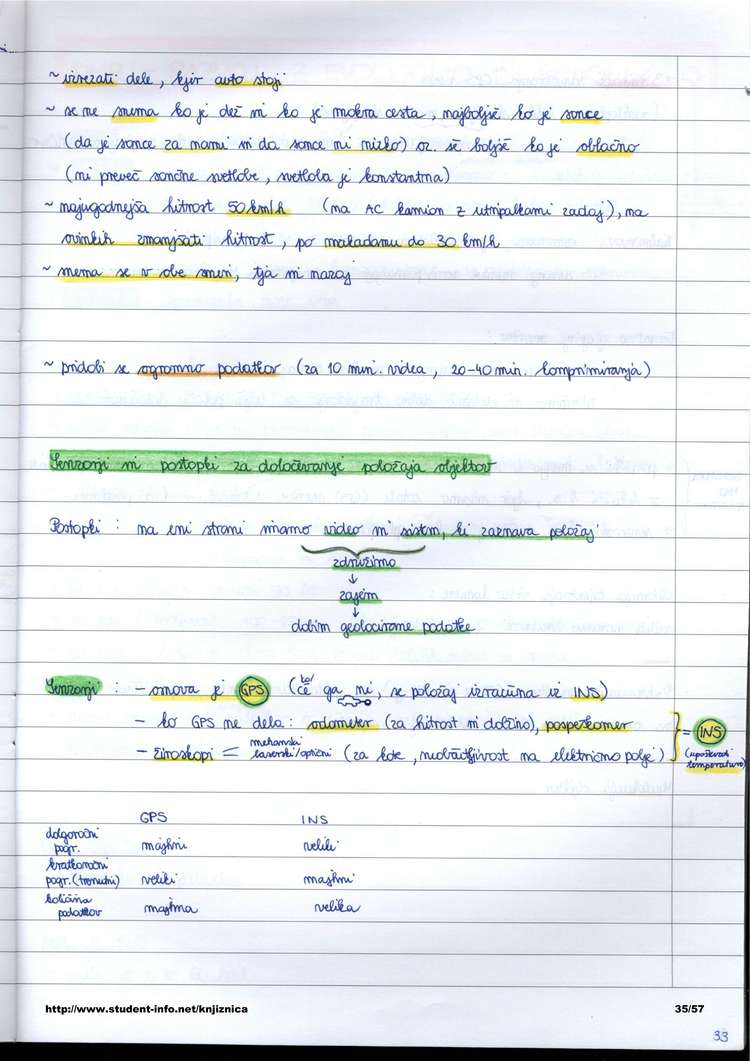 ~ izrezati dele, kjer avto stoji
~ se ne snema ko je dež in ko je mokra cesta, najboljše ko je sonce
(da je sonce za nami in da sonce ni nizko) oz. še boljše ko je oblačno
(ni preveč sončne svetlobe, svetloba je konstantna)
~ najugodnejša hitrost 50 km/h (na AC kamion z utripalkami zadaj), na
ovinkih zmanjšati hitrost, po makadamu do 30 km/h
~ snema se v obe smeri, tja in nazaj
~ pridobi se ogromno podatkov (za 10 min. videa, 20-40 min. komprimiranja)
Senzorji in postopki za določevanje položaja objektov
Postopki : na eni strani imamo video in sistem, ki zaznava položaj
združimo
↓
zajem
↓
dobim geolocirane podatke
Senzorji : - osnova je GPS (če ga ni, se položaj izračuna iz INS)
- ko GPS ne dela: odometer (za hitrost in dolžino), pospeškomer
- žiroskopi = mehanski laserski/optični (za kote, neobčutljivost na elektricno polje) } = INS
(upoštevati
temperaturo)
GPS INS
dolgoročni
pogr. majhni veliki
kratkoročni
pogr. (trenutni) veliki majhni
količina
podatkov majhna velika
http://www.student-info.net/knjiznica 35/57
33